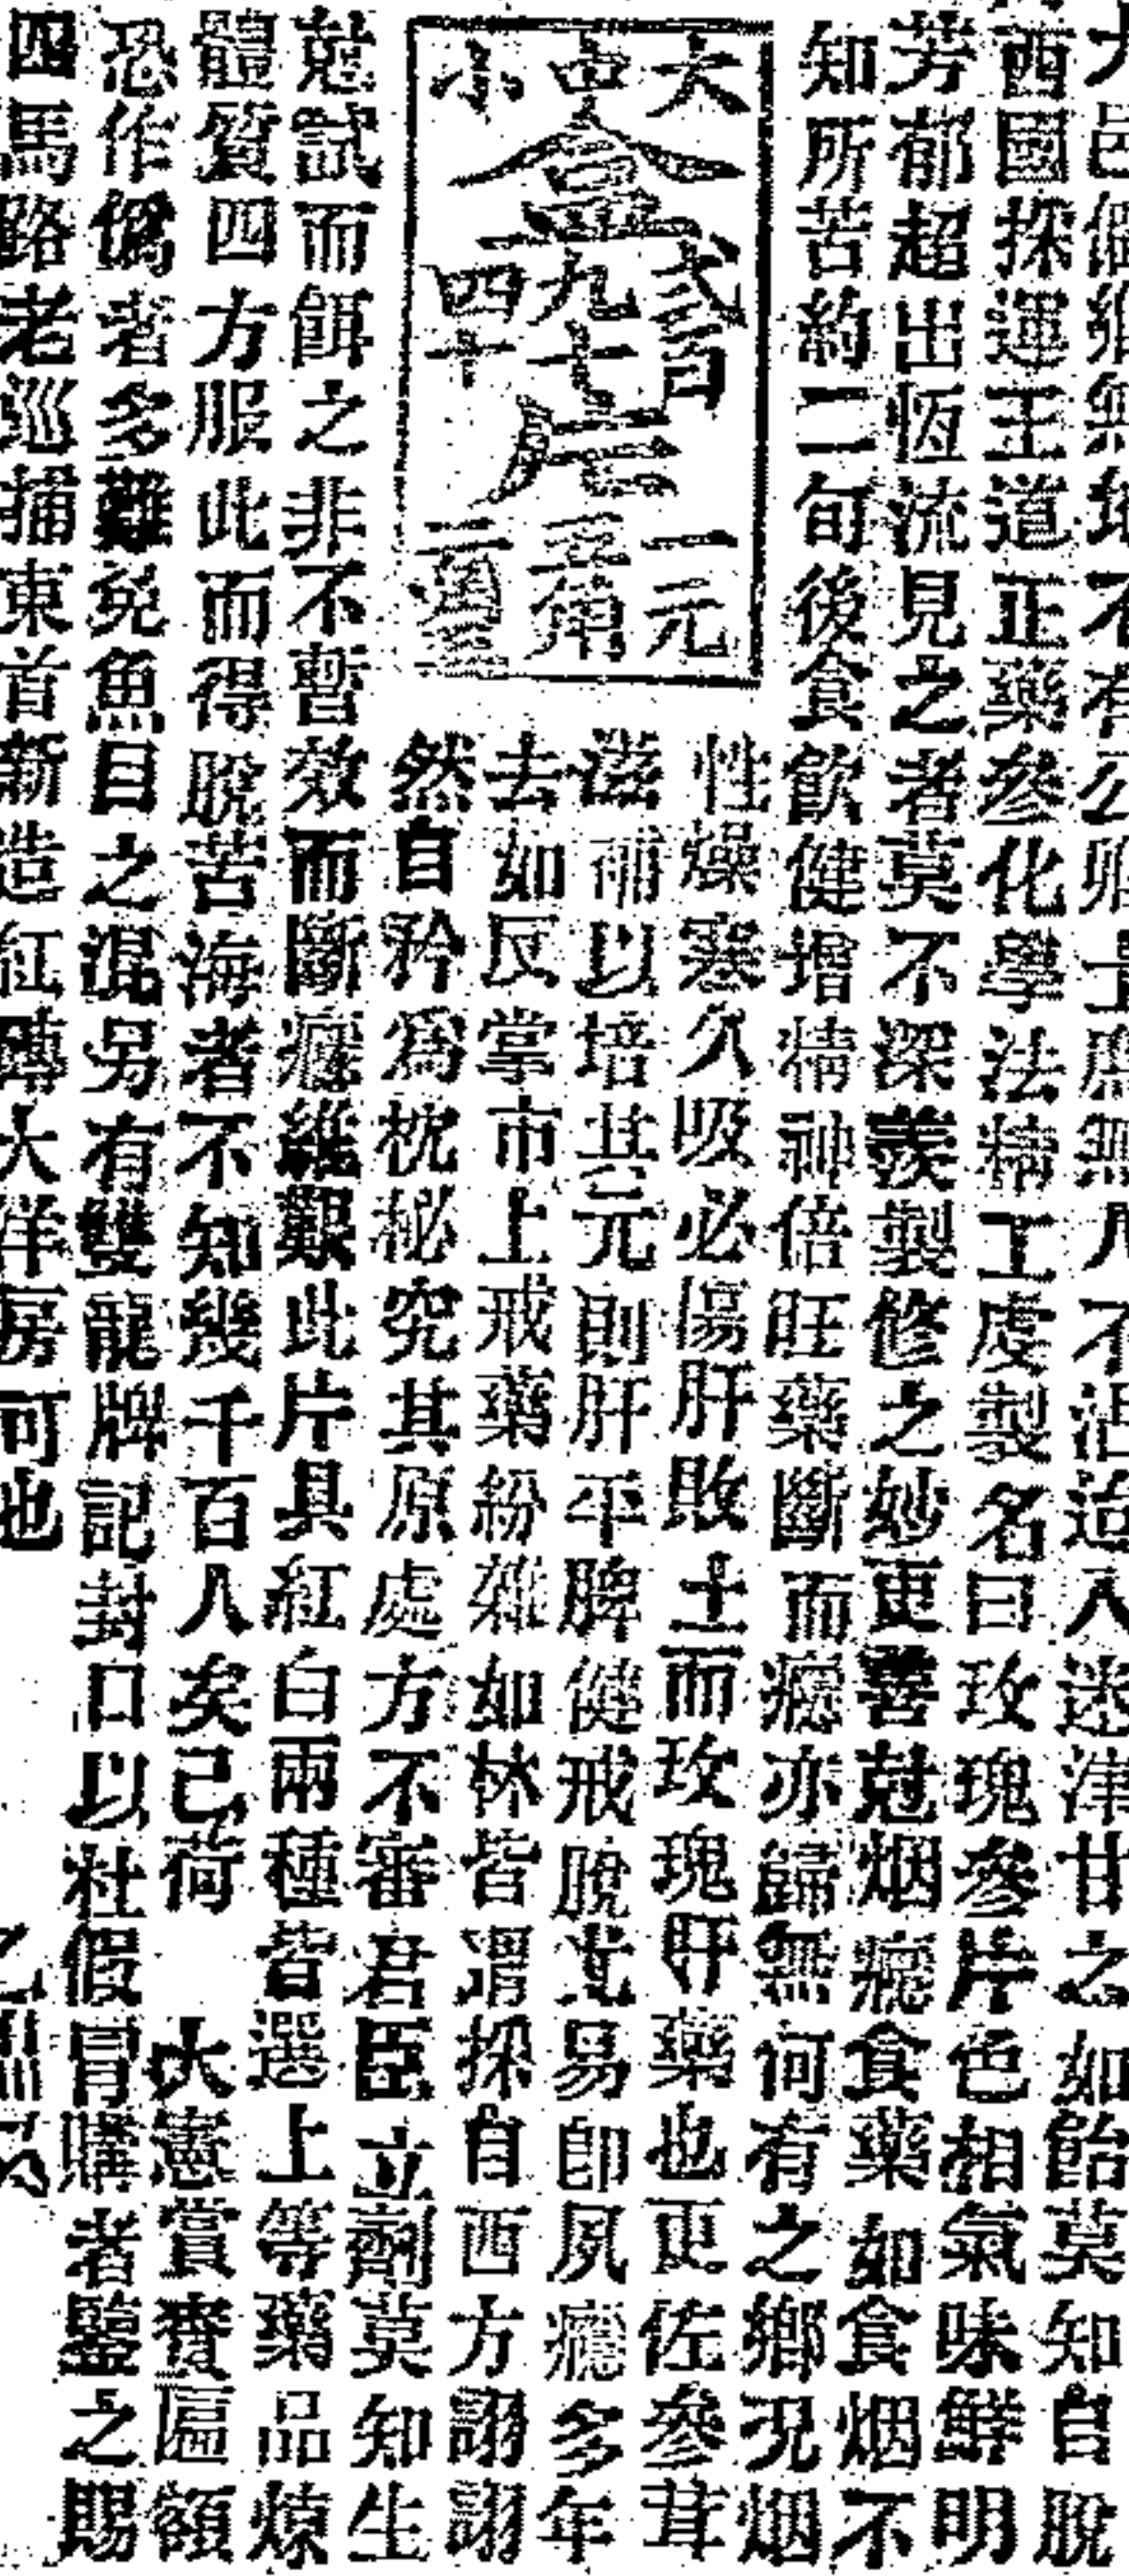 大邑偏鄉無地不有公卿士庶無人不沾迨入迷津甘之如飴莫知自脫
西國採運王道正藥參化學法精工虔製名曰玫瑰參片色相氣味鮮明
芳郁超出恆流見之者莫不深羨製修之妙更善尅烟癮食藥如食烟不
知所苦約二旬後食飲健增精神倍旺藥斷而癮亦歸無何有之鄉況烟
大中小盒
弍百九十四十片
一元
性燥寒久吸必傷肝敗土而玫瑰肝藥也更佐參茸
滋補以培其元則肝平脾健戒脫尤易卽夙癮多年
去如反掌市上戒藥紛雜如林皆謂採自西方詡詡
然自矜爲枕秘究其原處方不審君臣立劑莫知生
尅試而餌之非不暫效而斷癮維艱此片具紅白兩種皆選上等藥品煉
體質四方服此而得脫苦海者不知幾千百人矣己荷 大憲賞賚匾額
恐作僞者多難免魚目之混另有雙龍牌記封口以杜假冒購者鑒之賜
四馬路老巡捕東首新造紅磚大洋房可也